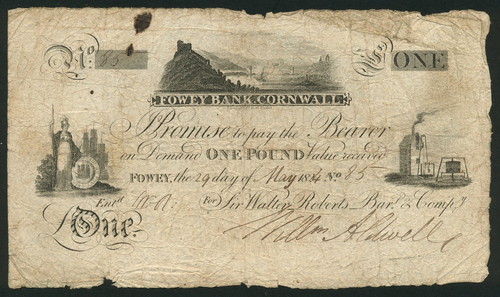 No. 85
ONE
FOWEY BANK CORNWALL
Promise to pay the Bearer
on Demand ONE POUND Value received
FOWEY, the 29 day of May 1824 No 85
Entd.
For Sir Walter Roberts Bart. & Compy.
£ One.
Willm Aldwell